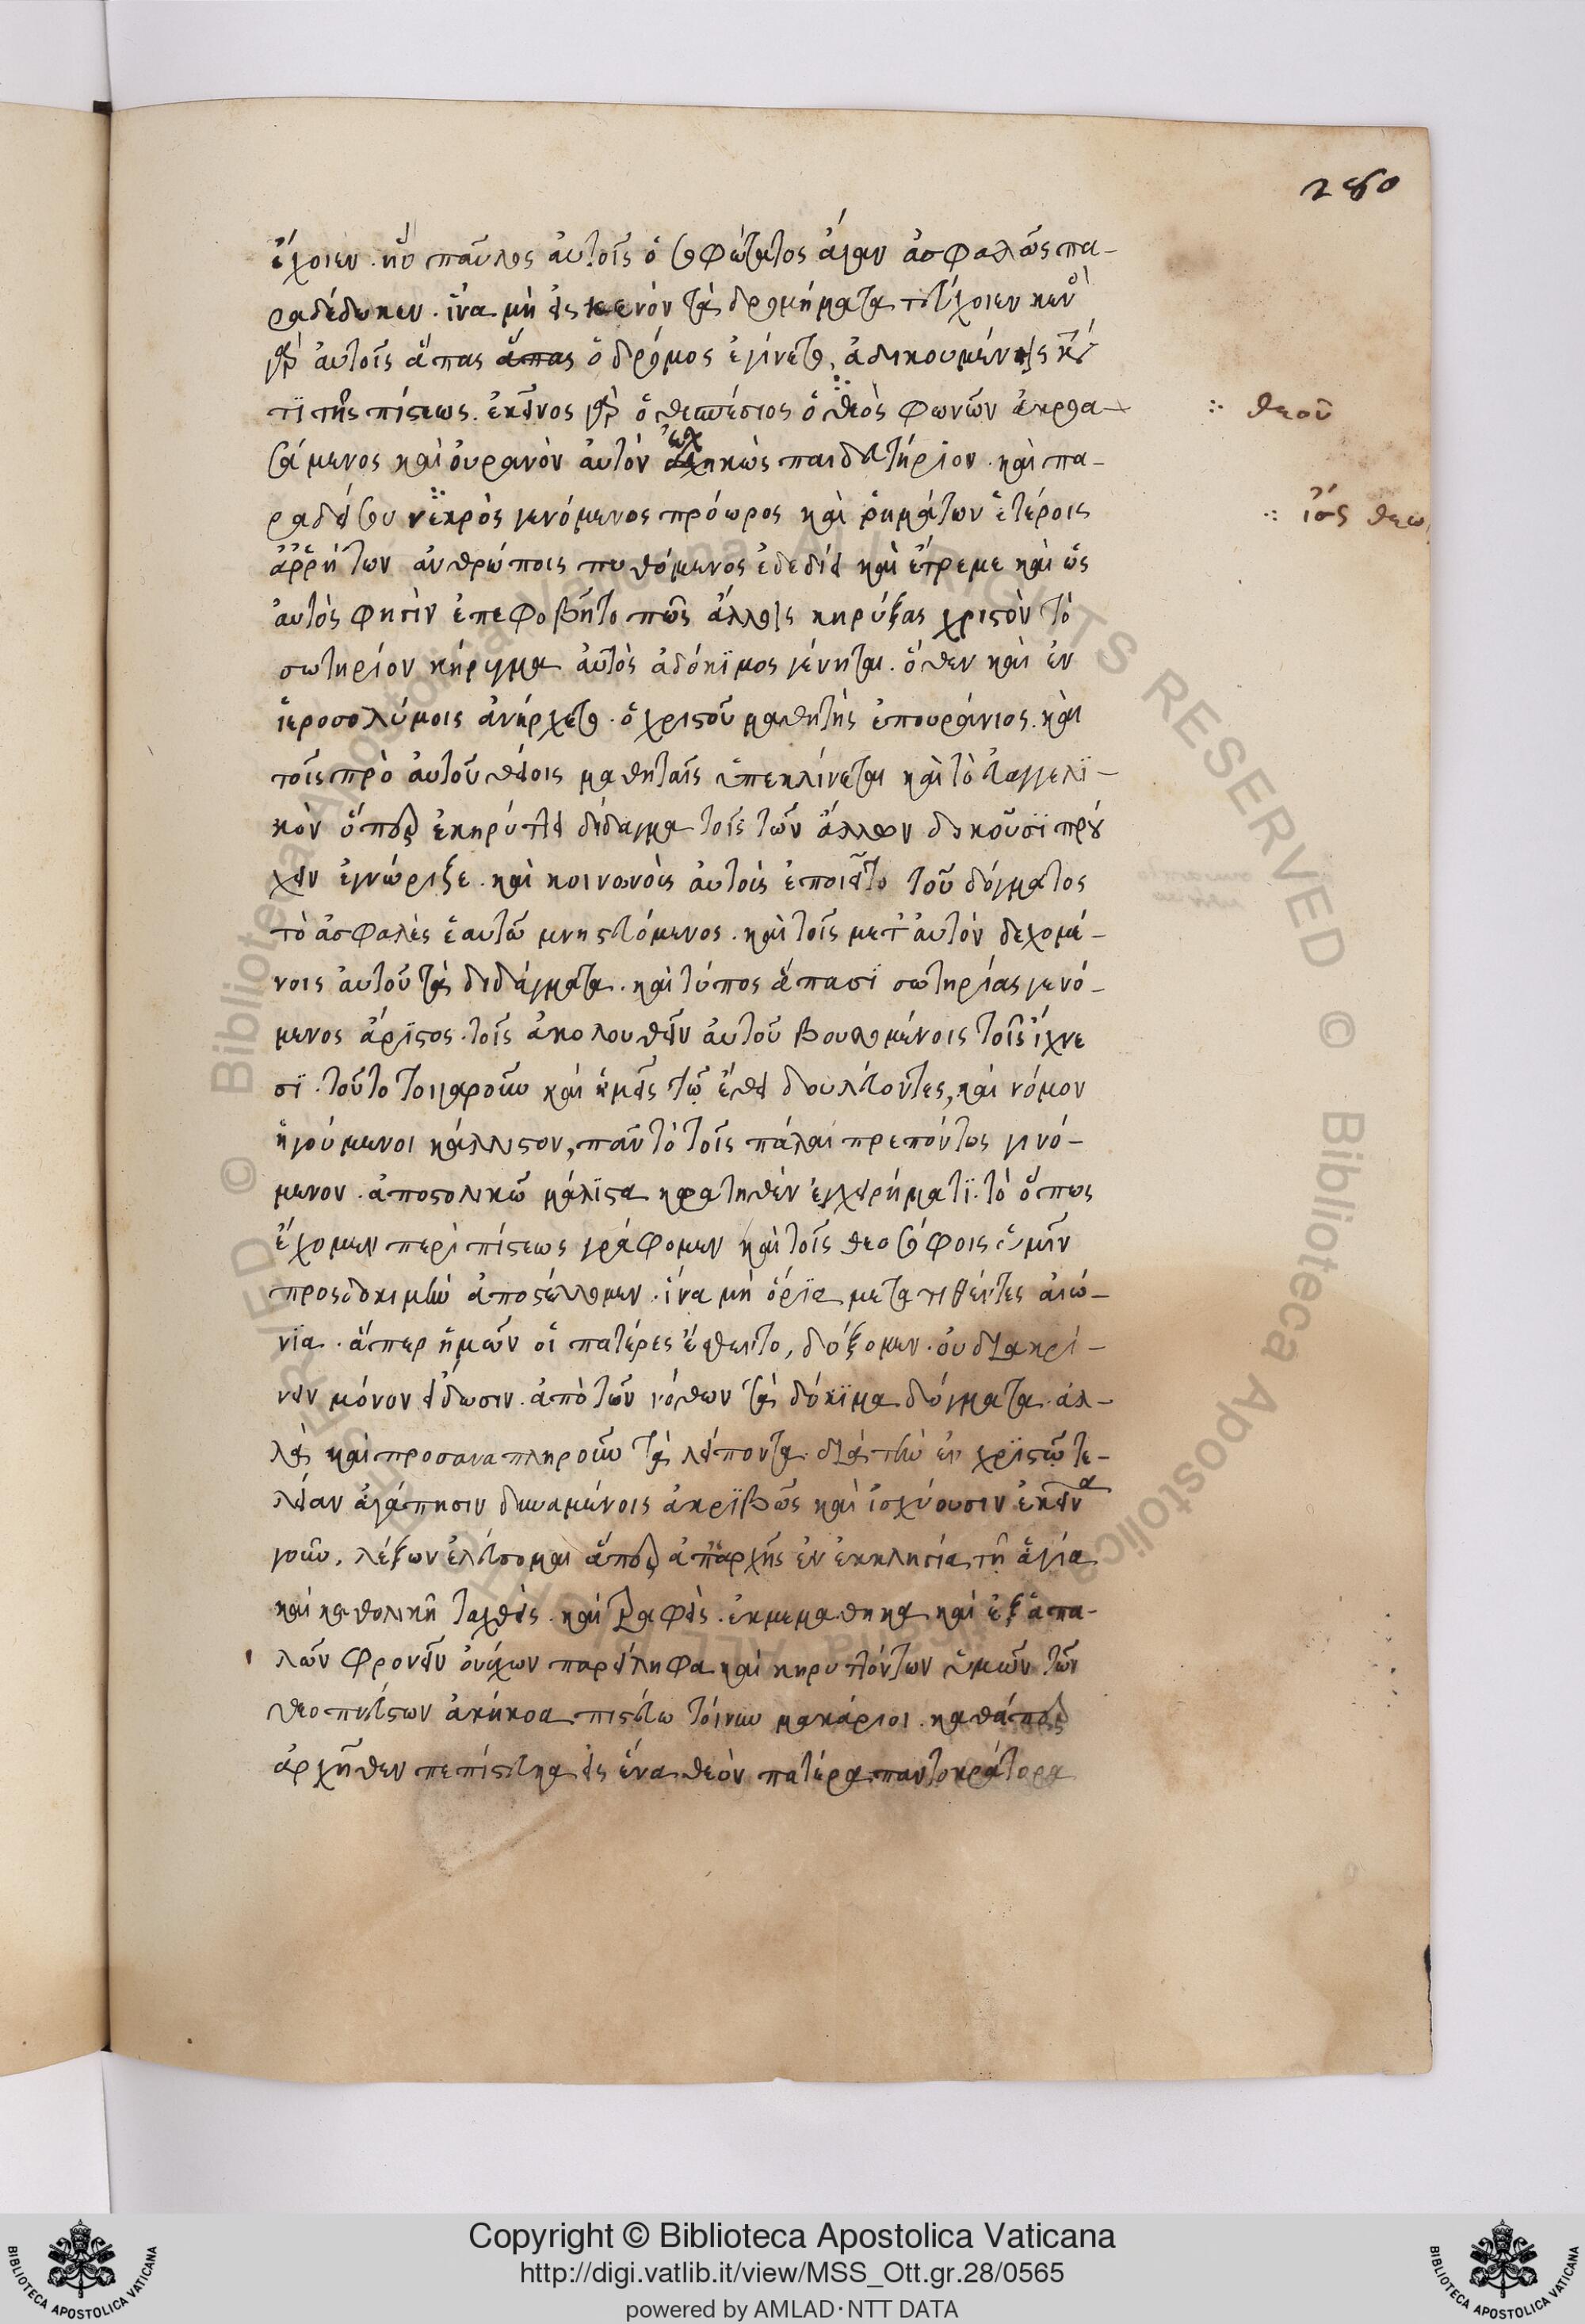 280
ἔχοιεν. ἣν παῦλος αὐτοῖς ὁ σοφώτατος ἄγαν ἀσφαλῶς πα-
ραδέδωκεν. ἵνα μὴ εἰς κενὸν τὰ δρομήματα τεύχοιεν κενὸ
γὰρ αὐτοῖς ἅπας ἅπας ὁ δρόμος ἐγίνετο, ἀδικουμένης
τϊ τῆς πίστεως. ἐκεῖνος γὰρ ὁ θεσπέσιος ὁ θεὸς φωνῶν ἀκροα-
θεοῦ
σάμενος καὶ οὐρανὸν αὐτὸν ἐσχηκὼς παιδευτήριον. καὶ πα-
ραδείσου νεκρὸς γενόμενος πρόωρος καὶ ῥημάτων ἑτέροις
ἀῤῥήτων ἀνθρώποις πυθόμενος ἐδεδίει καὶ ἔτρεμε καὶ ὡς
αὐτὸς φησὶν ἐπεφοβῆτο πῶς ἄλλοις κηρύξας χριστὸν τὸ
σωτηρίον κήρυγμα αὐτὸς ἀδόκϊμος γένηται. ὅθεν καὶ ἐν
ἱεροσολύμοις ἀνήρχετο. ὁ χριστοῦ μαθητὴς ἐπουράνιος. καὶ
τοῖς πρὸ αὐτοῦ θείοις μαθηταῖς ὑπεκλίνεται καὶ τὸ εὐαγγελϊ-
κὸν ὅπερ ἐκηρύττει δίδαγμα τοῖς τῶν ἄλλων δοκοῦσϊ πρού
χειν ἐγνώριξε. καὶ κοινωνοὺς αὐτοὺς ἐποιεῖτο τοῦ δόγματος
τὸ ἀσφαλὲς ἑαυτῶ μνηστευόμενος. καὶ τοῖς μετ' αὐτὸν δεχομέ-
νοις αὐτοῦ τὰ διδάγματα. καὶ τύπος ἅπασϊ σωτηρίας γενό-
μενος ἄρϊστος. τοῖς ἀκολουθεῖν αὐτοῦ βουλομένοις τοῖς ἴχνε
σϊ. τοῦτο τοιγαροῦν καὶ ἡμεῖς τῷ ἔθει δουλεύοντες, καὶ νόμον
ἡγούμενοι κάλλιστον, πᾶν τὸ τοῖς πάλαι πρεπόντως γινό-
μενον. ἀποστολικῶ μάλϊστα κρατηθὲν ἐγχειρήματϊ. τὸ ὅπως
ἔχομεν περὶ πίστεως γράφομεν καὶ τοῖς θεοσόφοις ὑμῖν
πρὸς δοκιμὴν ἀποστέλλομεν. ἵνα μὴ ὅρϊα μετατιθέντες αἰώ-
νϊα. ἅπερ ἡμῶν οἱ πατέρες ἔθεντο, δόξομεν. οὐ διακρί-
νειν μόνον εἰδῶσιν. ἀπὸ τῶν νόθων τὰ δόκϊμα δόγματα. ἀλ-
λὰ καὶ προσαναπληροῦν τὰ λείποντα. διὰ τὴν ἐν χρϊστῷ τε-
λείαν ἀγάπησιν δυναμένοις ἀκρϊβῶς καὶ ἰσχύουσιν ἐκεῖνα
γοῦν. λέξων ἐλεύσομαι ἅπερ ἀπαρχῆς ἐν ἐκκλησία τῆ ἁγία
καὶ καθολικῆ ταχθεὶς. καὶ τραφεὶς. ἐκμεμάθηκα καὶ ἐξ ἁπα-
λῶν φρονεῖν ὀνύχων παρείληφα καὶ κηρυττόντων ὑμῶν τῶν
θεοπνεύστων ἀκήκοα πιστεύω τοίνυν μακάριοι. καθάπερ
ἀρχῆθεν πεπίστευκα εἰς ἕνα θεὸν πατέρα παντοκράτορα
Copyright © Biblioteca Apostolica Vaticana
http://digi.vatlib.it/view/MSS_Ott.gr.28/0565
powered by AMLAD · NTT DATA